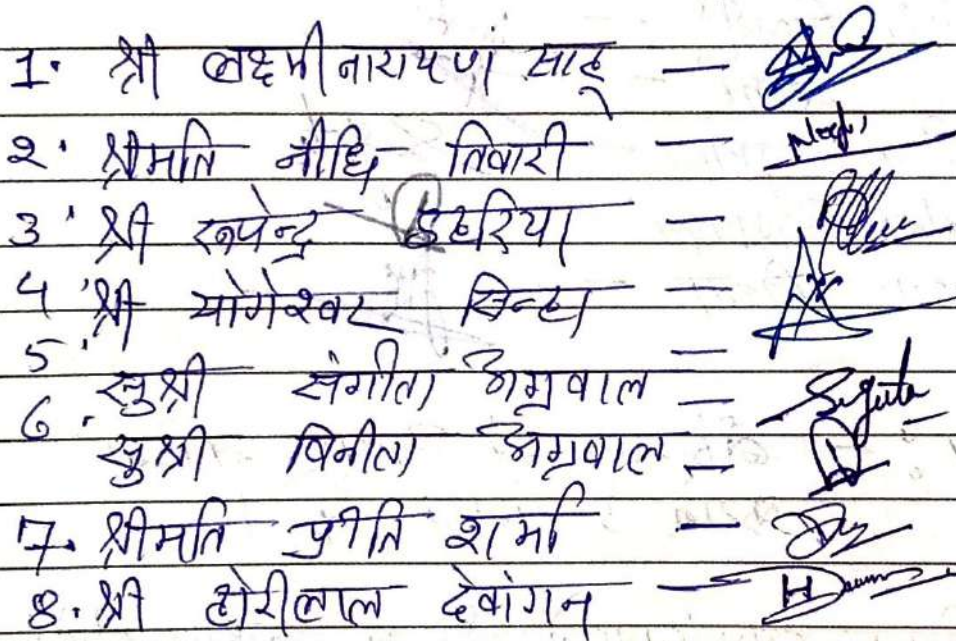 1. श्री लक्ष्मी नारायण साहू —
2. श्रीमति नीधि तिवारी —
3. श्री रूपेन्द्र डहरिया —
4. श्री योगेश्वर सिन्हा —
5. सुश्री संगीता अग्रवाल —
6. सुश्री विनीता अग्रवाल —
7. श्रीमति प्रीति शर्मा —
8. श्री होरीलाल देवांगन —